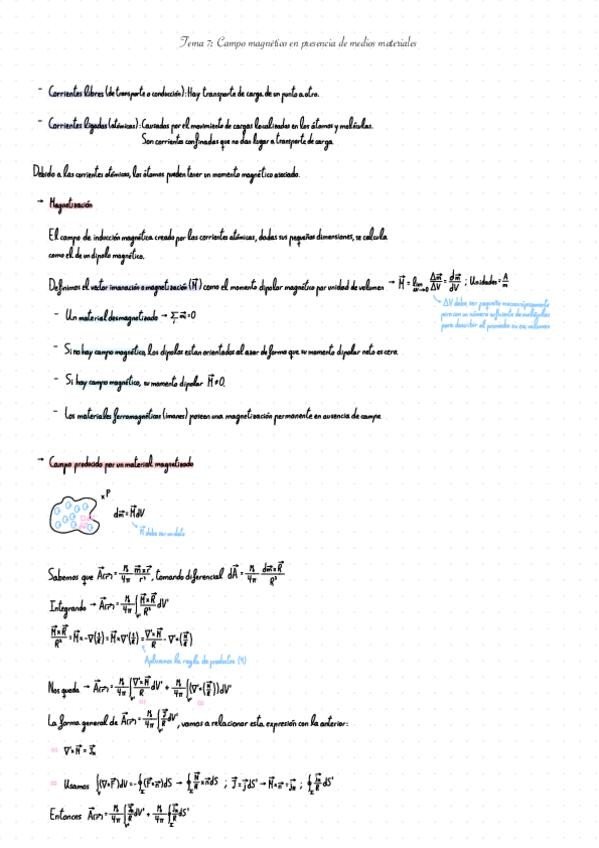 Tema 7: Campo magnético en presencia de medios materiales
- Corrientes libres (de transporte o conducción): Hay transporte de carga de un punto a otro.
- Corrientes ligadas (atómicas): Causadas por el movimiento de cargas localizadas en los átomos y moléculas.
Son corrientes confinadas que no dan lugar a transporte de carga.
Debido a las corrientes atómicas, los átomos pueden tener un momento magnético asociado.
→ Magnetización
El campo de inducción magnética creado por las corrientes atómicas, dadas sus pequeñas dimensiones, se calcula
como el de un dipolo magnético.
Definimos el vector imanación o magnetización (M⃗) como el momento dipolar magnético por unidad de volumen → M⃗ = lim ΔV→0 Δm⃗/ΔV = dm⃗/dV ; Unidades = A/m
ΔV debe ser pequeño macroscópicamente
pero con un número suficiente de moléculas
para describir el promedio en ese volumen
- Un material desmagnetizado → Σ m⃗ = 0
- Si no hay campo magnético, los dipolos están orientados al azar de forma que su momento dipolar neto es cero.
- Si hay campo magnético, su momento dipolar M⃗ ≠ 0.
- Los materiales ferromagnéticos (imanes) poseen una magnetización permanente en ausencia de campo.
→ Campo producido por un material magnetizado
x P
dm⃗ = M⃗dV
M⃗ debe ser un dato
Sabemos que A⃗(r⃗) = μ₀/4π m⃗×r⃗/r³, tomando diferencial dA⃗ = μ₀/4π dm⃗×R⃗/R³
Integrando → A⃗(r⃗) = μ₀/4π ∫ M⃗×R⃗/R³ dV'
M⃗×R⃗/R³ = M⃗×-∇(1/R) = M⃗×∇'(1/R) = ∇'×M⃗/R - ∇'×(M⃗/R)
Aplicamos la regla de productos (4)
Nos queda → A⃗(r⃗) = μ₀/4π ∫ ∇'×M⃗/R dV' + μ₀/4π ∫(∇'×(M⃗/R))dV'
La forma general de A⃗(r⃗) = μ₀/4π ∫ J⃗/R dV', vamos a relacionar esta expresión con la anterior:
∇'×M⃗ = J⃗m
Usamos ∫(∇×F⃗)dV = -∮(F⃗×n⃗)dS → ∮ M⃗/R ×n⃗dS ; J⃗ = j⃗dS' → M⃗×n⃗ = j⃗m ; ∮ j⃗m/R dS'
Entonces A⃗(r⃗) = μ₀/4π ∫ J⃗m/R dV' + μ₀/4π ∮ j⃗m/R dS'